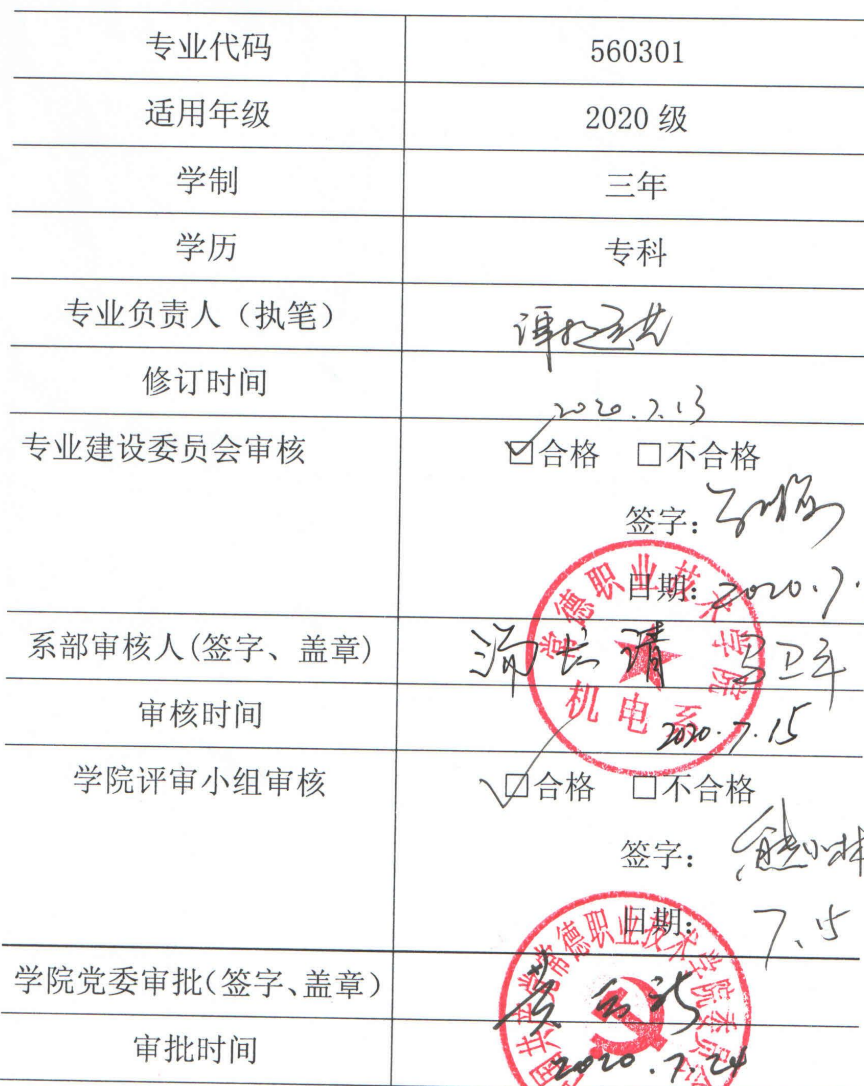 专业代码 560301
适用年级 2020 级
学制 三年
学历 专科
专业负责人（执笔）
修订时间 2020.7.13
专业建设委员会审核 ☑合格 □不合格
签字：
日期：2020.7.
常德职业技术学院
系部审核人(签字、盖章)
机电系
审核时间 2020.7.15
学院评审小组审核 ☑合格 □不合格
签字：熊小林
日期：7.15
学院党委审批(签字、盖章)
国共产党常德职业技术学院委员会
审批时间 2020.7.24